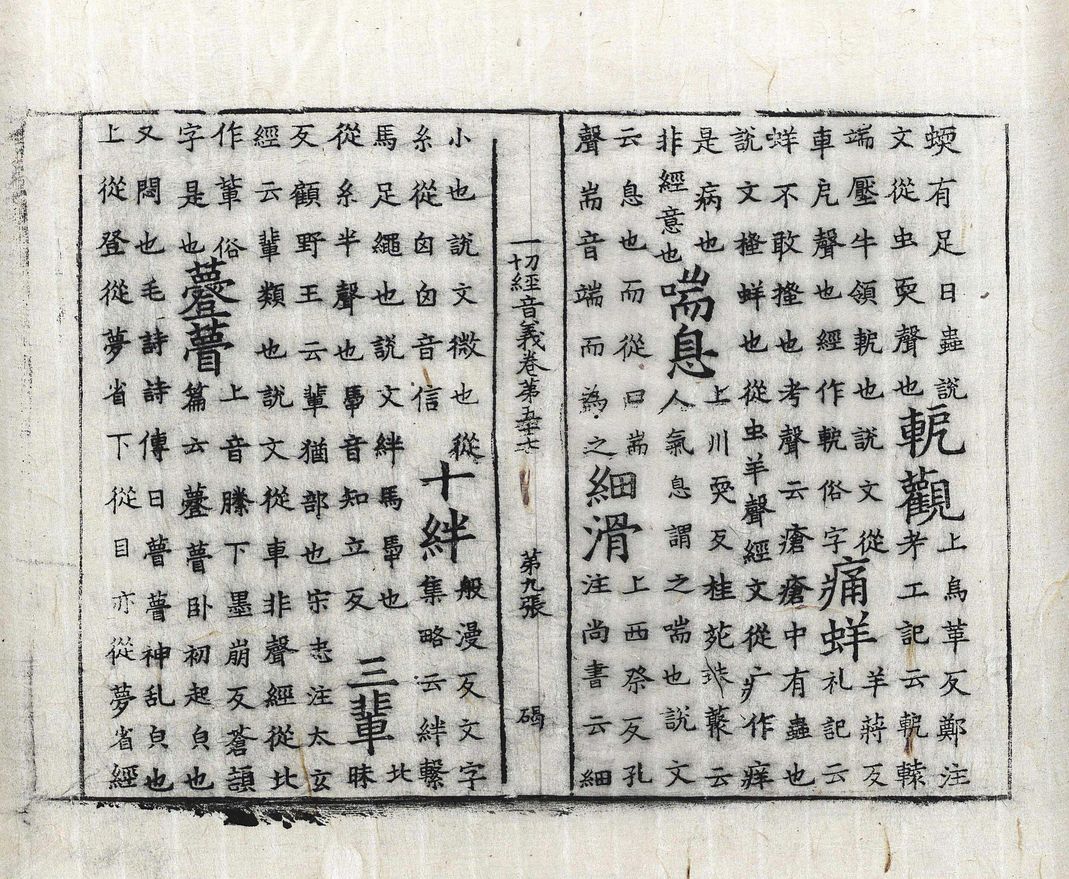 蝡有足曰蟲說
文從虫耎聲也
軛觀
上烏革反鄭注
考工記云軶轅
端壓牛領軶也說文從
車戹聲也經作軶俗字
痛蛘
羊蔣反
礼記云
蛘不敢搔也考聲云瘡瘡中有蟲也
說文搔蛘也從虫羊聲經文從疒作痒
是病也
非經意也
喘息
上川耎反桂苑珠藂云
人氣息謂之喘也說文
云息也而從口耑
聲耑音端而為之
細滑
上西祭反孔
注尚書云細
一切經音義卷第五十七 第九張 碣
小也說文微也從
糸從囟囟音信
十絆
般漫反文字
集略云絆繫
馬足繩也說文絆馬馽也
從糸半聲也馽音知立反
三輩
北
昧
反顧野王云輩猶部也宋忠注太玄
經云輩類也說文從車非聲經從比
作輩俗
字是也
瞢
上音騰下墨崩反蒼頡
篇云瞢臥初起皃也
又悶也毛詩詩傳曰瞢瞢神乱皃也
上從登從夢省下從目亦從夢省經